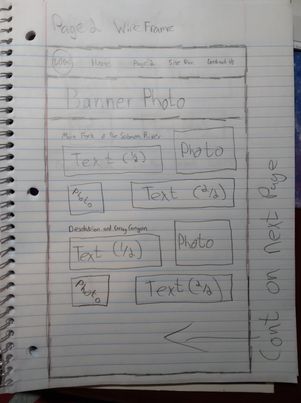 Page 2 Wire Frame
LOGO Home Page 2 Site Plan Contact Us
Banner Photo
Main Fork of the Salmon River
Text (1/2)
Photo
Photo
Text (2/2)
Desolation and Gray Canyon
Text (1/2)
Photo
Photo
Text (2/2)
Con't on Next Page